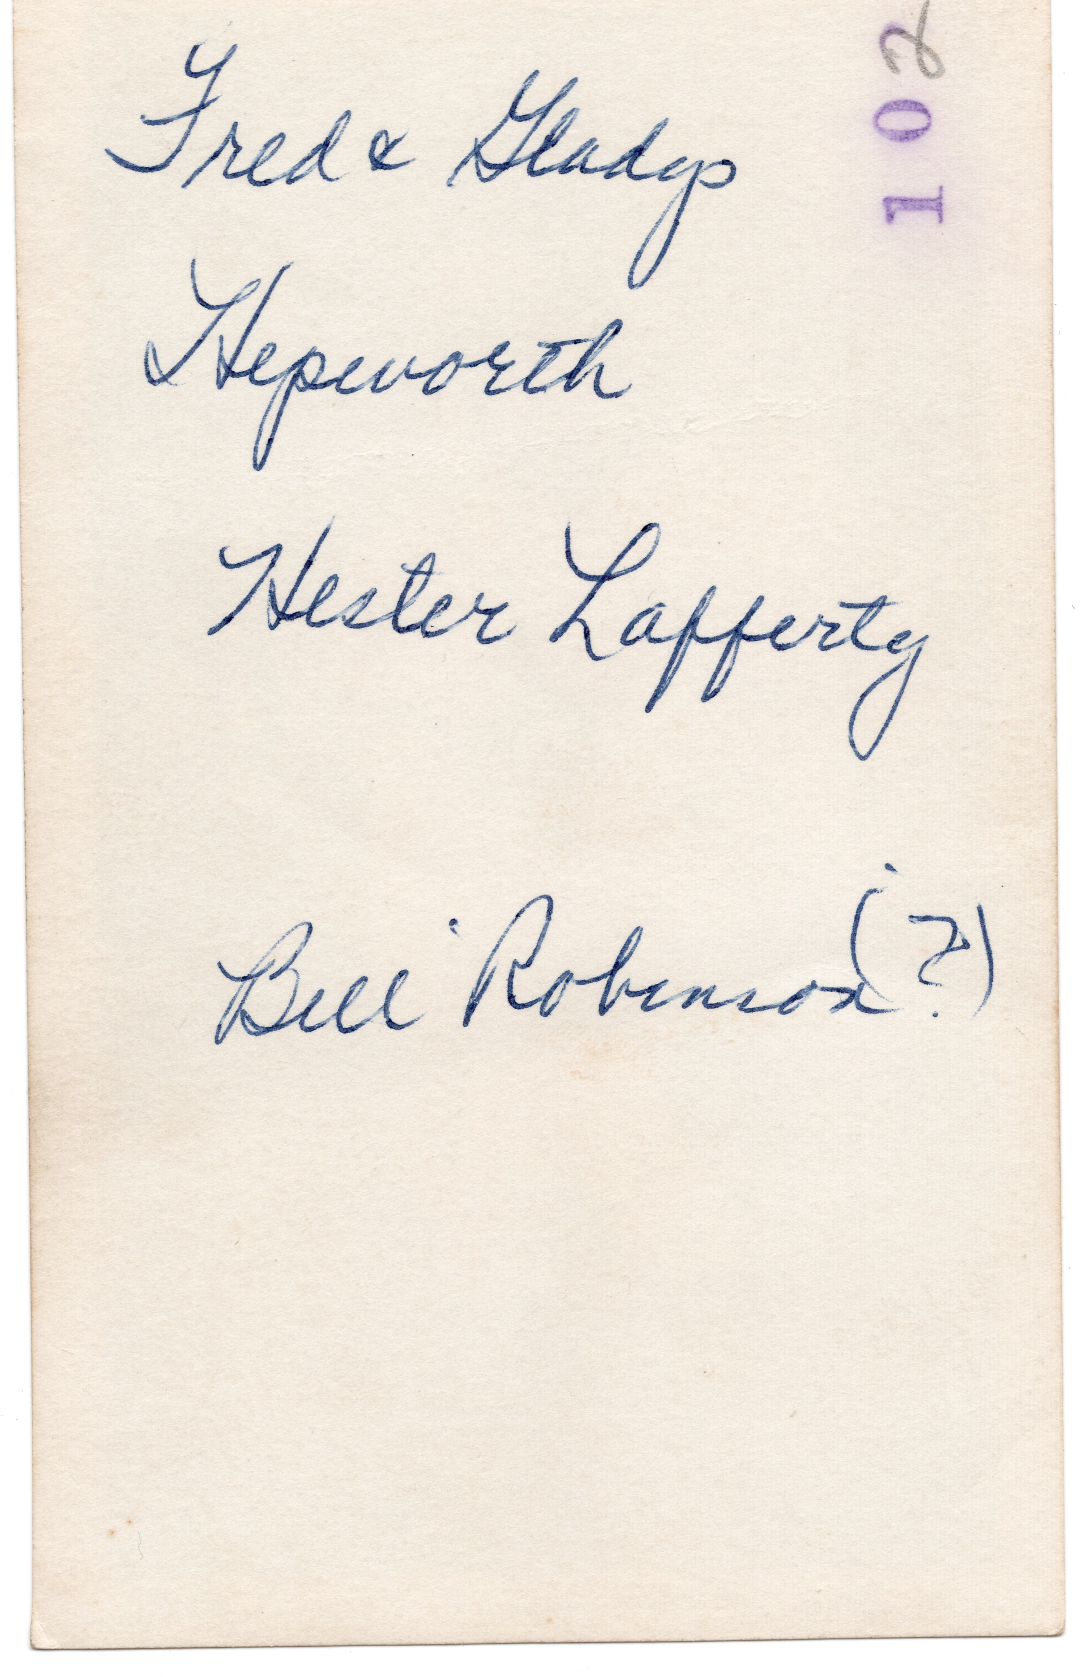 102
Fred & Gladys
Hepworth
Hester Lafferty
Bill Robinson (?)